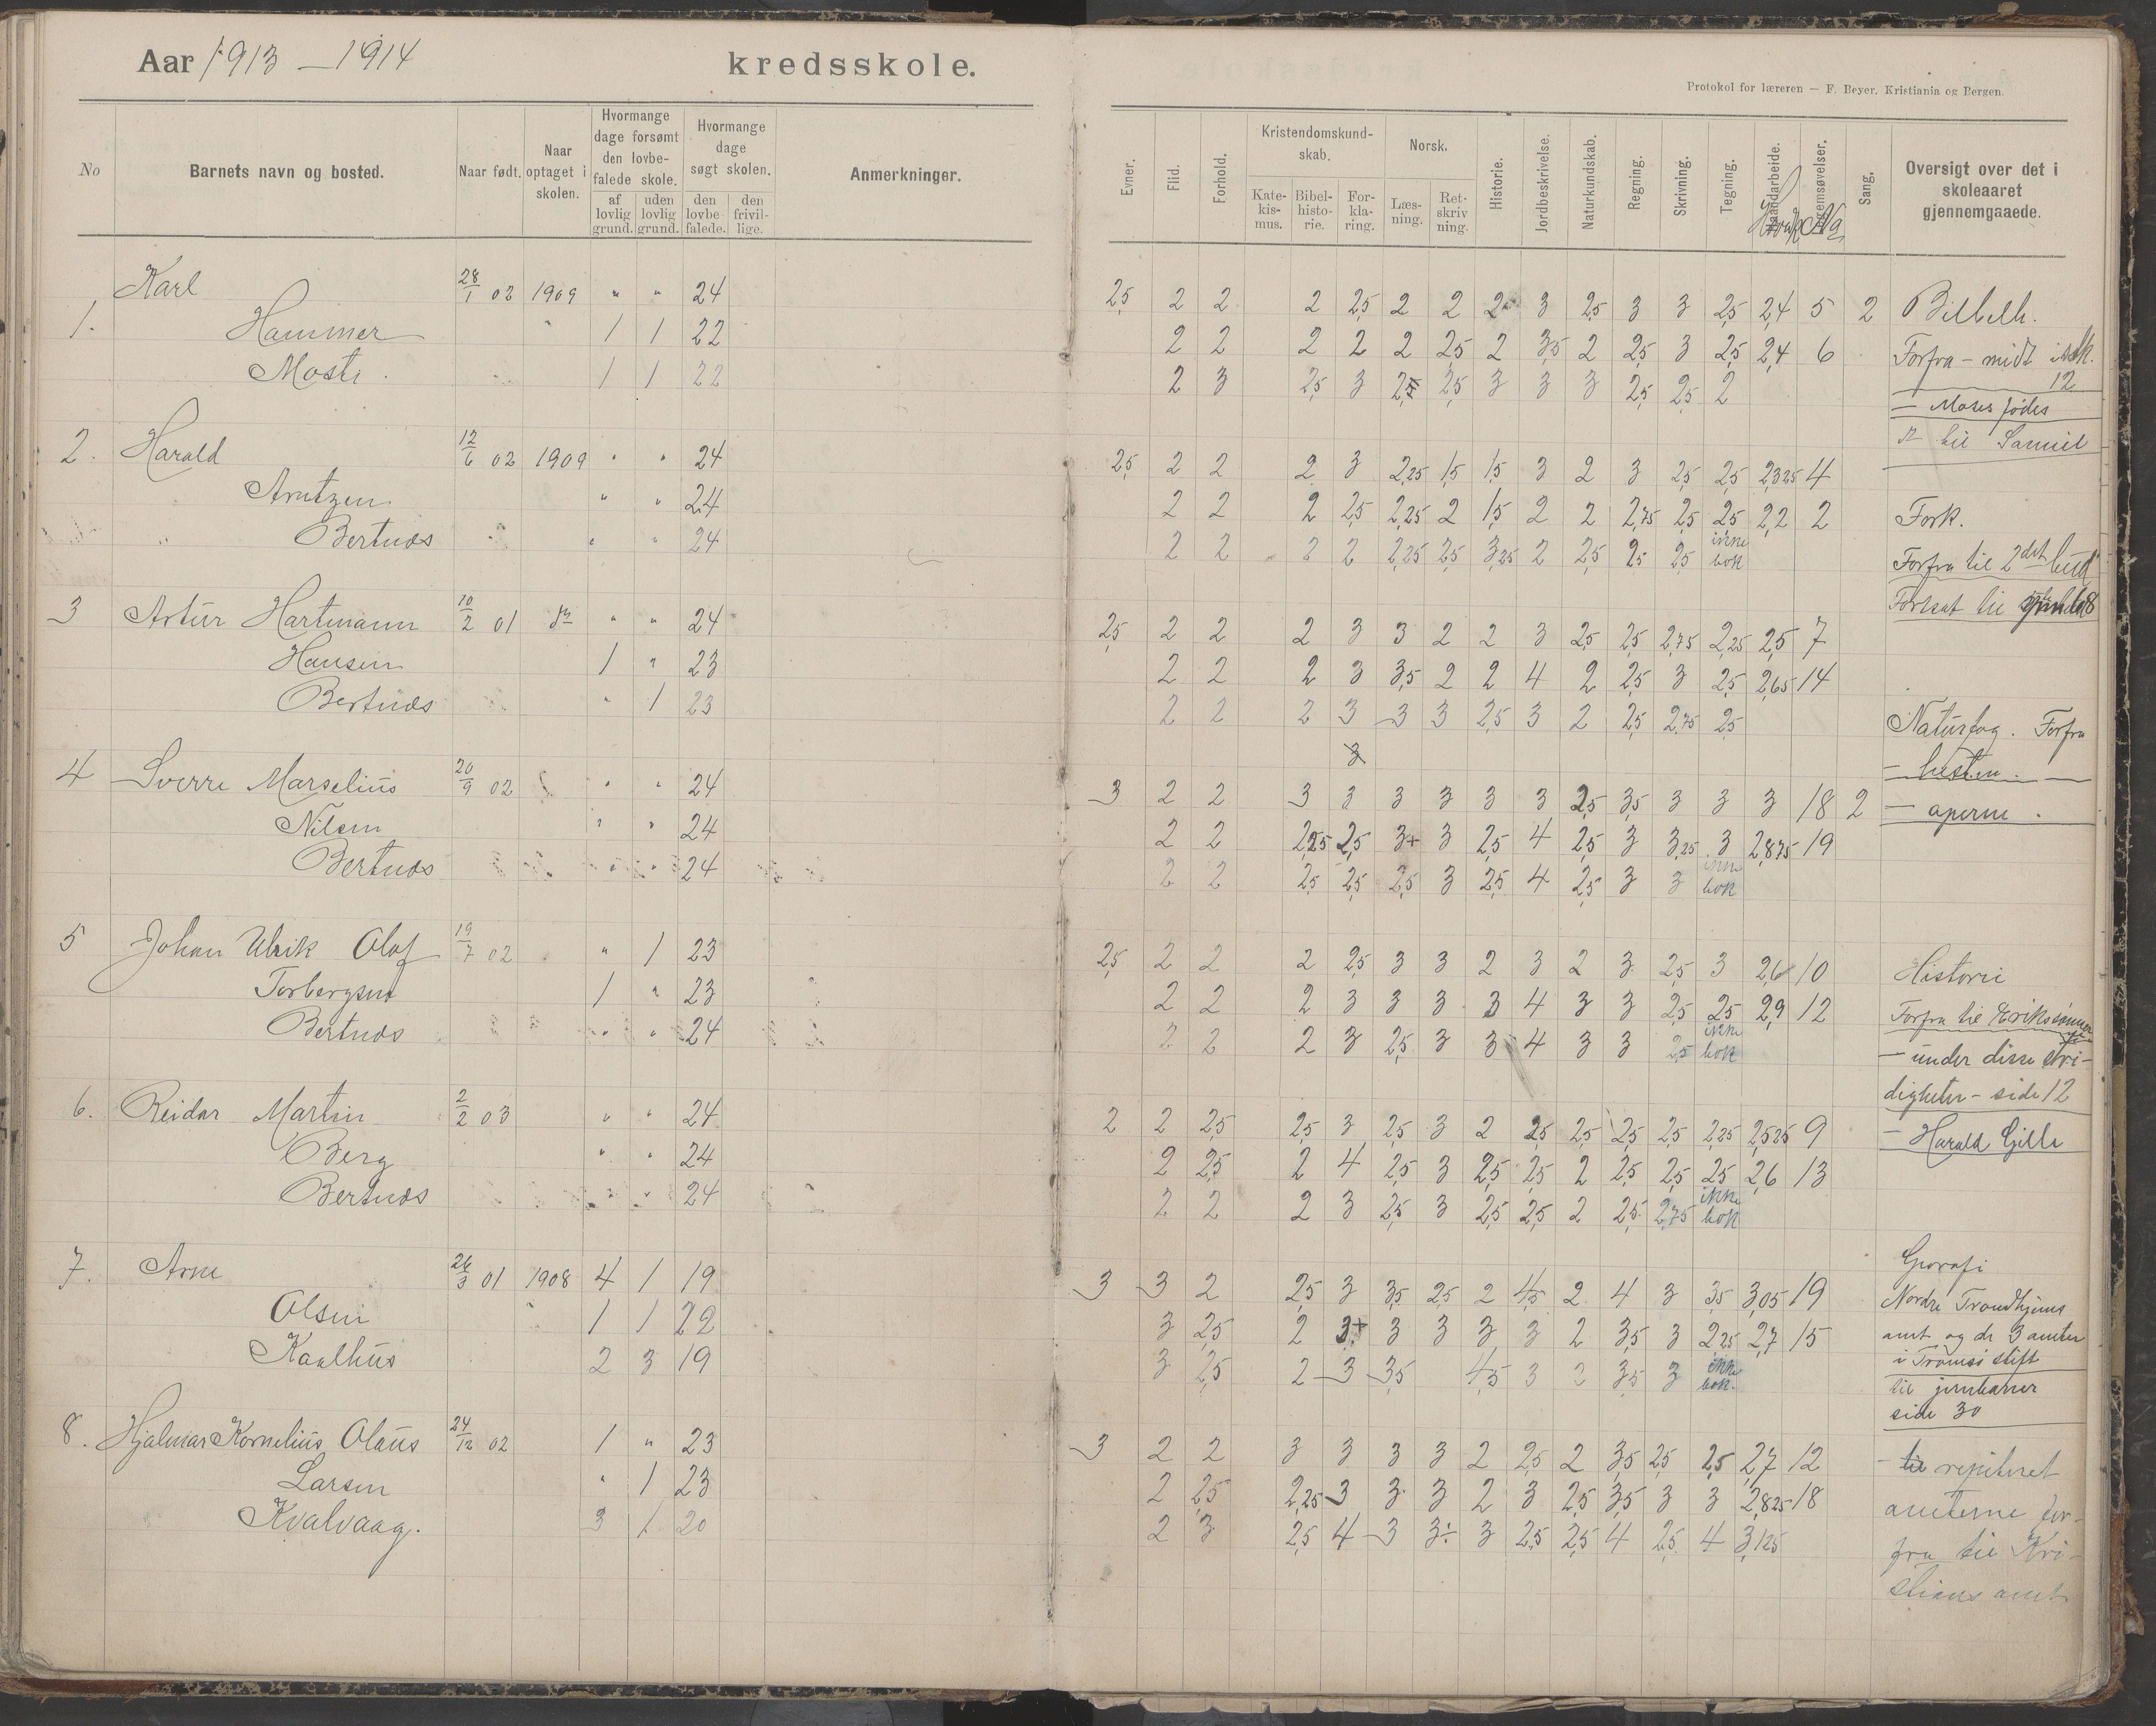 Aar 1913 – 1914 kredsskole.
Protokol for læreren — F. Beyer, Kristiania og Bergen.
No
Barnets navn og bosted.
Naar født.
Naar optaget i skolen.
Hvormange dage forsømt den lovbefalede skole.
af lovlig grund.
uden lovlig grund.
Hvormange dage søgt skolen.
den lovbefalede.
den frivillige.
Anmerkninger.
Evner.
Flid.
Forhold.
Kristendomskundskab.
Katekismus.
Bibelhistorie.
Forklaring.
Norsk.
Læsning.
Retskrivning.
Historie.
Jordbeskrivelse.
Naturkundskab.
Regning.
Skrivning.
Tegning.
Haandarbeide.
Legemsøvelser.
Sang.
Oversigt over det i skoleaaret gjennemgaaede.
1. Karl 28/1 02 1909 " " 24 2,5 2 2 2 2,5 2 2 2 3 2,5 3 3 2,5 2,4 5 2
Hammer " 1 1 22 2 2 2 2 2 2,5 2 3,5 2 2,5 3 2,5 2,4 6
Moste. 1 1 22 2 3 2,5 3 2,5 3 3 3 2,5 2,5 2
2. Harald 12/6 02 1909 " " 24 2,5 2 2 2 3 2,25 1,5 1,5 3 2 3 2,5 2,5 2,325 4
Arntzen " " 24 2 2 2 2,5 2,25 2 1,5 2 2 2,75 2,5 2,5 2,2 2
Bertnæs " " 24 2 2 2 2 2,25 2,5 3,25 2 2,5 2,5 2,5 ikke bok
3 Artur Hartmann 10/2 01 " " 24 2,5 2 2 2 3 3 2 2 3 2,5 2,5 2,75 2,25 2,5 7
Hansen 1 " 23 2 2 2 3 3,5 2 2 4 2 2,5 3 2,5 2,65 14
Bertnæs " 1 23 2 2 2 3 3 3 2,5 3 2 2,5 2,75 2,5
4 Sverre Marselius 20/9 02 " " 24 3 2 2 3 3 3 3 3 3 2,5 3,5 3 3 3 18 2
Nilsen " " 24 2 2 2,25 2,5 3+ 3 2,5 4 2,5 3 3,25 3 2,875 19
Bertnæs " " 24 2 2 2,5 2,5 2,5 3 2,5 4 2,5 3 3 ikke bok
5 Johan Ulrik Olaf 19/7 02 " 1 23 2,5 2 2 2 2,5 3 3 2 3 2 3 2,5 3 2,6 10
Torbergsen 1 " 23 2 2 2 3 3 3 3 4 3 3 2,5 2,5 2,9 12
Bertnæs " " 24 2 2 2 3 2,5 3 3 4 3 3 2,5 ikke bok
6. Reidar Martin 2/2 03 " " 24 2 2 2,5 2,5 3 2,5 3 2 2,5 2,5 2,5 2,5 2,25 2,525 9
Berg " " 24 2 2,5 2 4 2,5 3 2,5 2,5 2 2,5 2,5 2,5 2,6 13
Bertnæs " " 24 2 2 2 3 2,5 3 2,5 2,5 2 2,5 2,75 ikke bok
7. Arne 26/3 01 1908 4 1 19 3 3 2 2,5 3 3,5 2,5 2 4,5 2 4 3 3,5 3,05 19
Olsen 1 1 22 3 2,5 2 3+ 3 3 3 3 2 3,5 3 2,25 2,7 15
Kaalhus 2 3 19 3 2,5 2 3 3,5 4,5 3 2 3,5 3 ikke bok.
8. Hjalmar Kornelius Olaus 24/12 02 1 " 23 3 2 2 3 3 3 3 2 2,5 2 3,5 2,5 2,5 2,7 12
Larsen " 1 23 2 2,5 2,25 3 3 3 2 3 2,5 3,5 3 3 2,825 18
Kvalvaag. 3 1 20 2 3 2,5 4 3 3÷ 3 2,5 2,5 4 2,5 4 3,125
Bibelh.
Forfra – midt i stk.
12
– Moses fødes
til Samuel
Fork.
Forfra til 2det bud
Naturfag. Forfra
– hesten. –
– aperne.
Historie
Forfra til Erikssønnene
– under disse stri-
digheter – side 12
– Harald Gille
Georafi
Nordre Trondhjems
amt og de 3 amter
i Tromsø stift
til jernbaner
side 30
– repiteret
amterne for-
fra til Kri-
stians amt